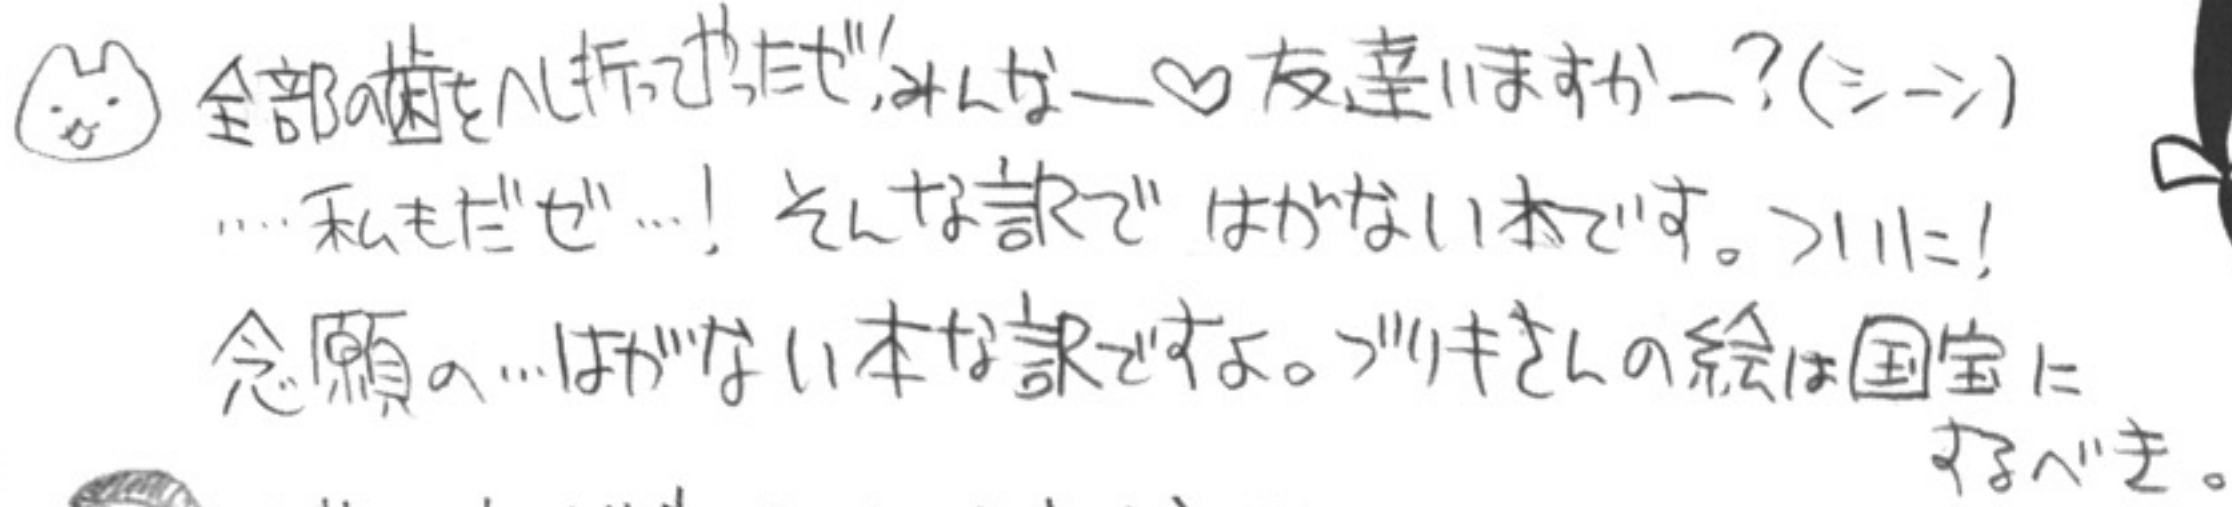 全部の歯をへし折ってやったぜ!みんなー♡友達いますかー?(シーン)
……私もだぜ…! そんな訳で はがない本です。ついに!
念願の…はがない本な訳ですよ。ブリキさんの絵は国宝に
するべき。